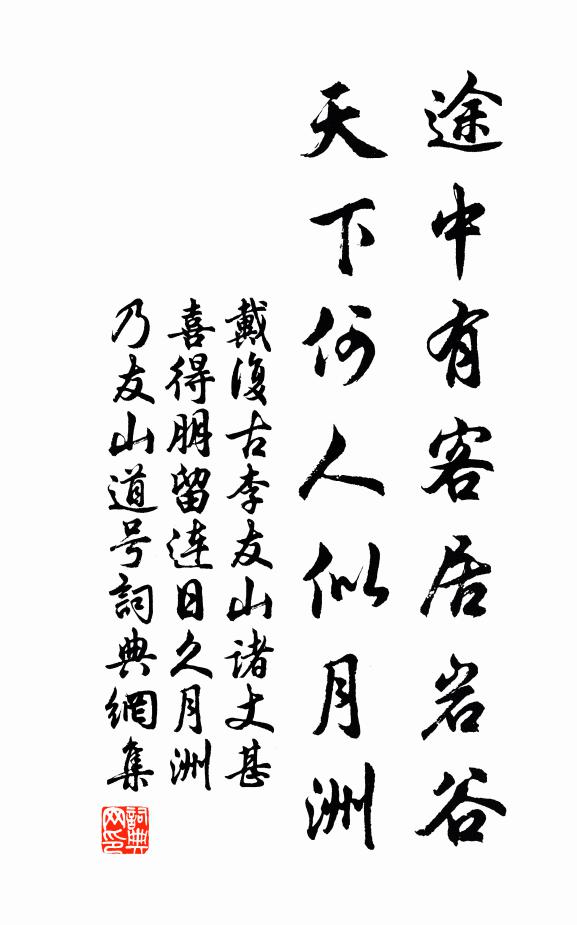 途中有客居岩谷
天下何人似月洲
戴復古李友山諸丈甚
喜得朋留连日久月洲
乃友山道号詞典網集
詞典网印